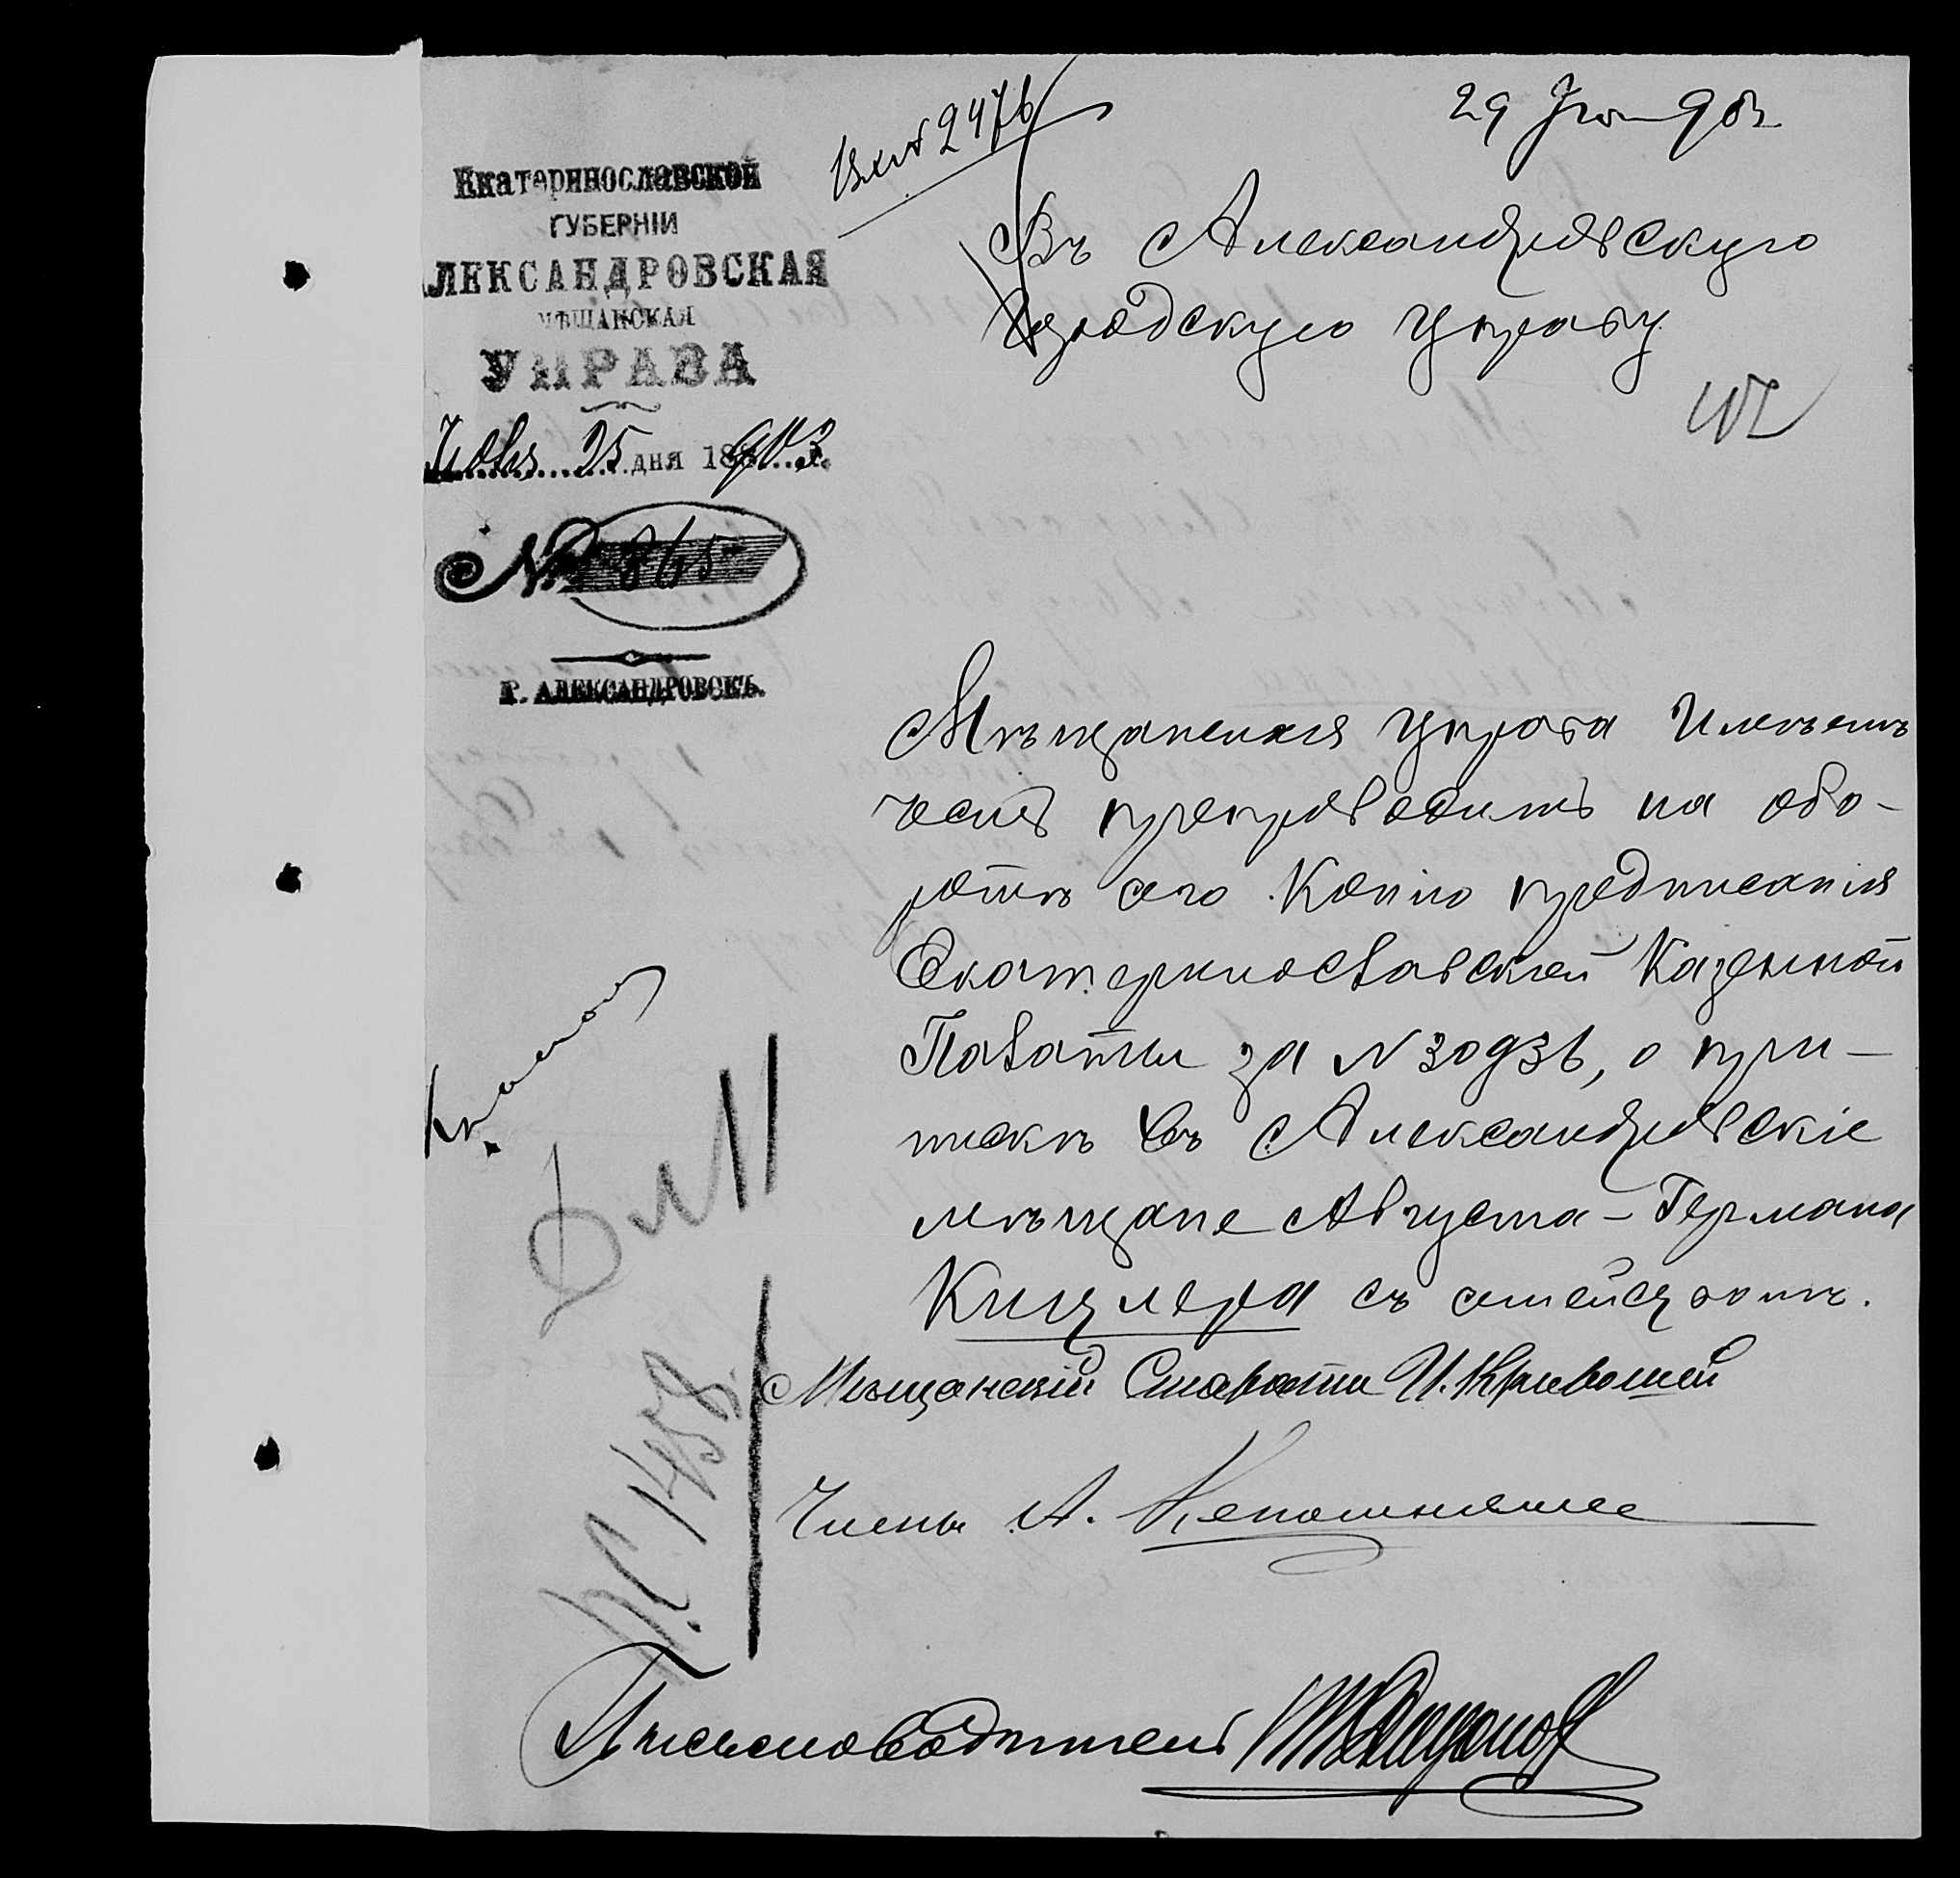 Вх № 2476
29 Іюл 903
Екатеринославской
ГУБЕРНІИ
АЛЕКСАНДРОВСКАЯ
МѢЩАНСКАЯ
УПРАВА
25 дня 1903 г.
№ 865
Г. АЛЕКСАНДРОВСКЪ.
Въ Александровскую
Городскую Управу
Мѣщанская Управа Имѣетъ
честь препроводить на обо-
ротѣ сего Копію предписанія
Екатеринославской Казенной
Палаты за № 30936, о при-
пискѣ въ Александровскіе
мѣщане Августа-Германа
Кицлера съ семействомъ.
Мѣщанскій Староста И. Кривошей
Членъ А.
Письмоводитель